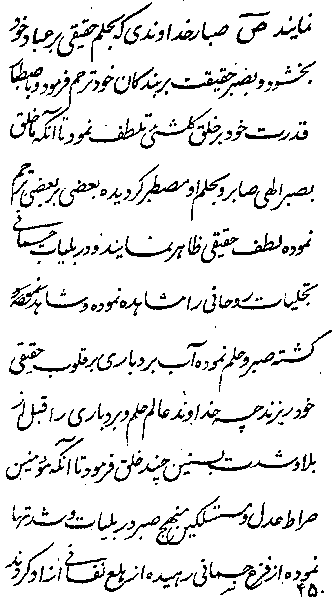 نمایند ص صبار خداوندی که بحلم حقیقی بر عباد خود
بخشود و بصبر حقیقت بر بندگان خود ترحم فرمود و باصطبار
قدرت خود بر خلق کلشیئ تلطف نمود تا آنکه ما خلق
بصبر الهی صابر و بحلم او مصطبر کردیده بعضی بر بعضی ترحم
نموده لطف حقیقی ظاهر نمایند و در بلیات جسمانی
تجلیات روحانی را مشاهده نموده و شاهد مقصود
کشته صبر و حلم نموده آب بردباری بر قلوب حقیقی
خود ریزند چه خداوند عالم حلم و بردباری را قبل از
بلا و شدت بسنین چند خلق فرمود تا آنکه مؤمنین
صراط عدل و مستسلکین منهج صبر در بلیات و شدتها
نموده از فزع جسمانی رهیده از هلع نفسانی آزاد کردند
۴۵۰